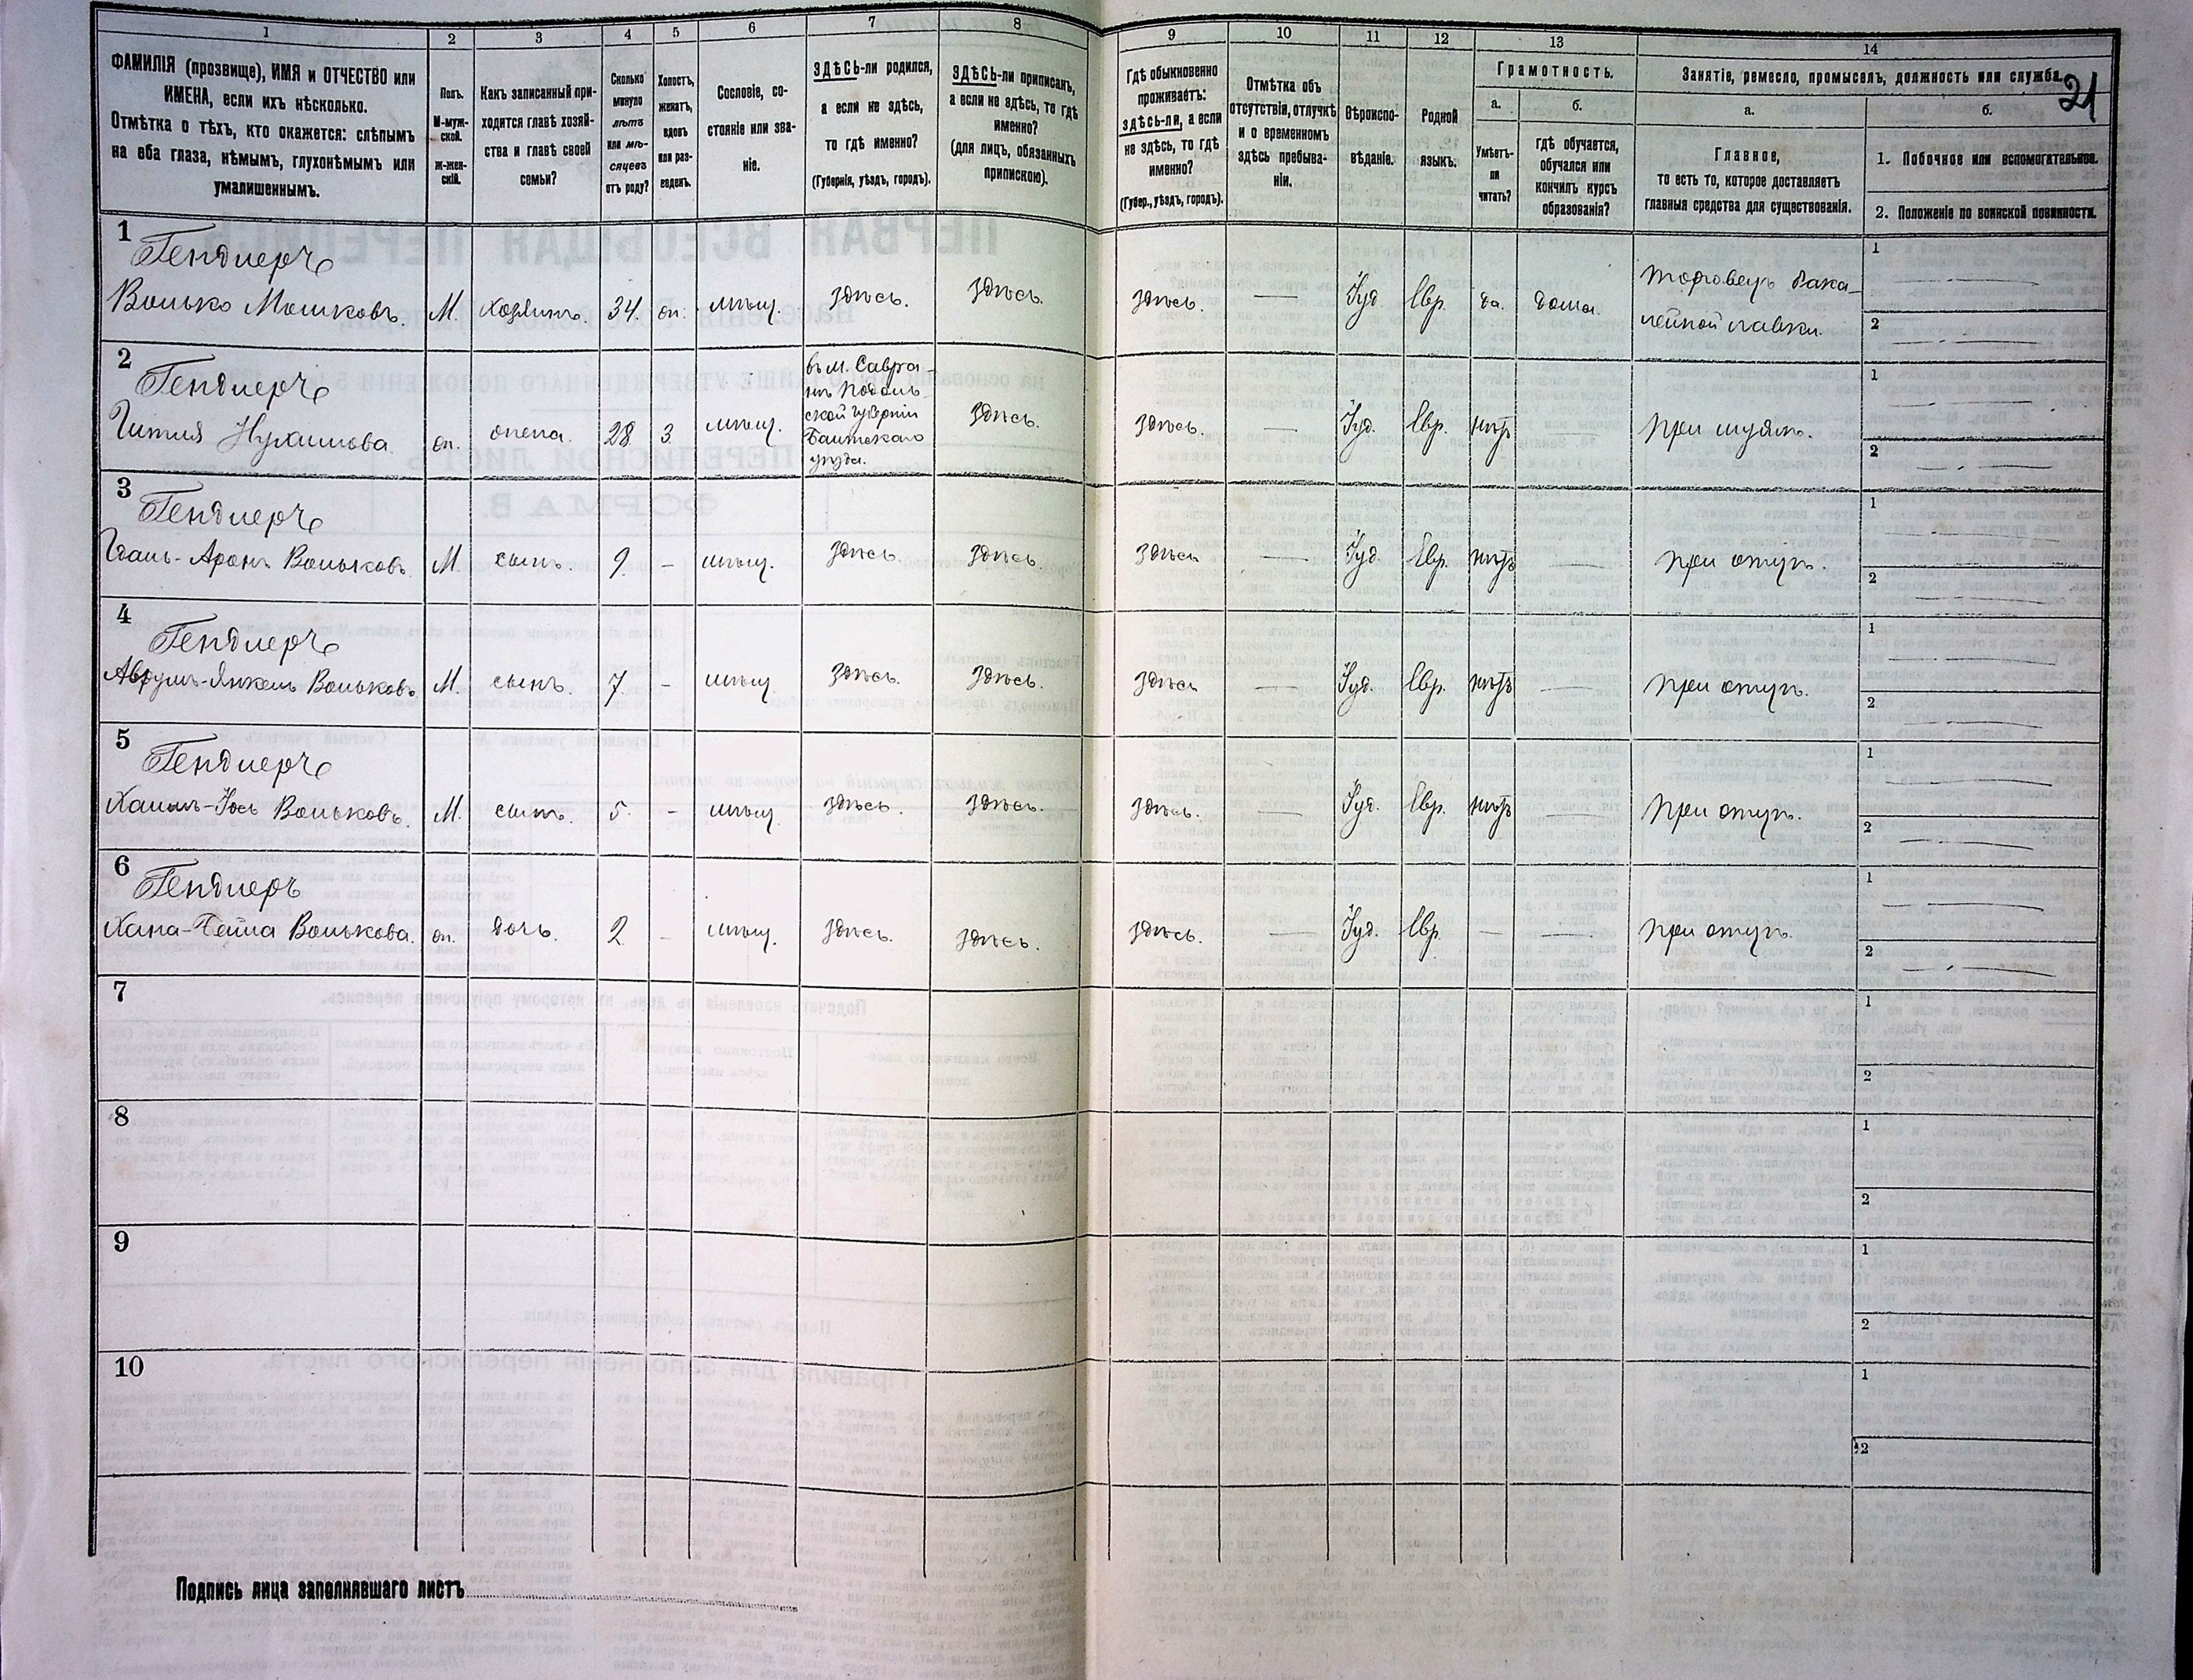 1 2 3 4 5 6 7 8 9 10 11 12 13 14
ФАМИЛІЯ (прозвище), ИМЯ и ОТЧЕСТВО или
ИМЕНА, если ихъ нѣсколько.
Отмѣтка о тѣхъ, кто окажется: слѣпымъ
на оба глаза, нѣмымъ, глухонѣмымъ или
умалишеннымъ.
Полъ.
М-муж-
ской.
Ж-жен-
скій.
Какъ записанный при-
ходится главѣ хозяй-
ства и главѣ своей
семьи?
Сколько
минуло
лѣтъ
или мѣ-
сяцевъ
отъ роду?
Холостъ,
женатъ,
вдовъ
или раз-
веденъ.
Сословіе, со-
стояніе или зва-
ніе.
ЗДѢСЬ-ли родился,
а если не здѣсь,
то гдѣ именно?
(Губернія, уѣздъ, городъ).
ЗДѢСЬ-ли приписанъ,
а если не здѣсь, то гдѣ
именно?
(для лицъ, обязанныхъ
припискою).
Гдѣ обыкновенно
проживаетъ:
здѣсь-ли, а если
не здѣсь, то гдѣ
именно?
(Губер., уѣздъ, городъ).
Отмѣтка объ
отсутствіи, отлучкѣ
и о временномъ
здѣсь пребыва-
ніи.
Вѣроиспо-
вѣданіе.
Родной
языкъ.
Грамотность.
а. б.
Умѣетъ-
ли
читать?
гдѣ обучается,
обучался или
кончилъ курсъ
образованія?
Занятіе, ремесло, промыселъ, должность или служба.
21
а. б.
Главное,
то есть то, которое доставляетъ
главныя средства для существованія.
1. Побочное или вспомогательное.
2. Положеніе по воинской повинности.
1
Гендлеръ
Волько Мошковъ. М. хозяинъ. 34. жп. мѣщ. здѣсь. здѣсь. здѣсь. — Іуд. Евр. да. дома.
торговецъ бака-
лейной лавки.
1 —
2 —
2
Гендлеръ
Гитля Нухимова. жп. жена. 28 3 мѣщ.
въ м. Савра-
нь Подоль-
ской губерніи
Балтскаго
уѣзда.
здѣсь. здѣсь. — Іуд. Евр. нѣтъ при мужѣ.
1 —
2 —
3
Гендлеръ
Аронъ Вольковъ. М. сынъ. 9. - мѣщ. здѣсь. здѣсь. здѣсь — Іуд. Евр. нѣтъ — при отцѣ.
1 —
2 —
4
Гендлеръ
Аврумъ-Янкель Вольковъ. М. сынъ. 7. - мѣщ. здѣсь. здѣсь. здѣсь — Іуд. Евр. нѣтъ — при отцѣ.
1 —
2 —
5
Гендлеръ
Хаимъ-Іось Вольковъ. М. сынъ. 5. - мѣщ. здѣсь. здѣсь. здѣсь. — Іуд. Евр. нѣтъ — при отцѣ.
1 —
2 —
6
Гендлеръ
Хана-Бейла Волькова. жп. дочь. 2. - мѣщ. здѣсь. здѣсь. здѣсь. — Іуд. Евр. — — при отцѣ.
1 —
2 —
7
1
2
8
1
2
9
1
2
10
1
2
Подпись лица заполнявшаго листъ